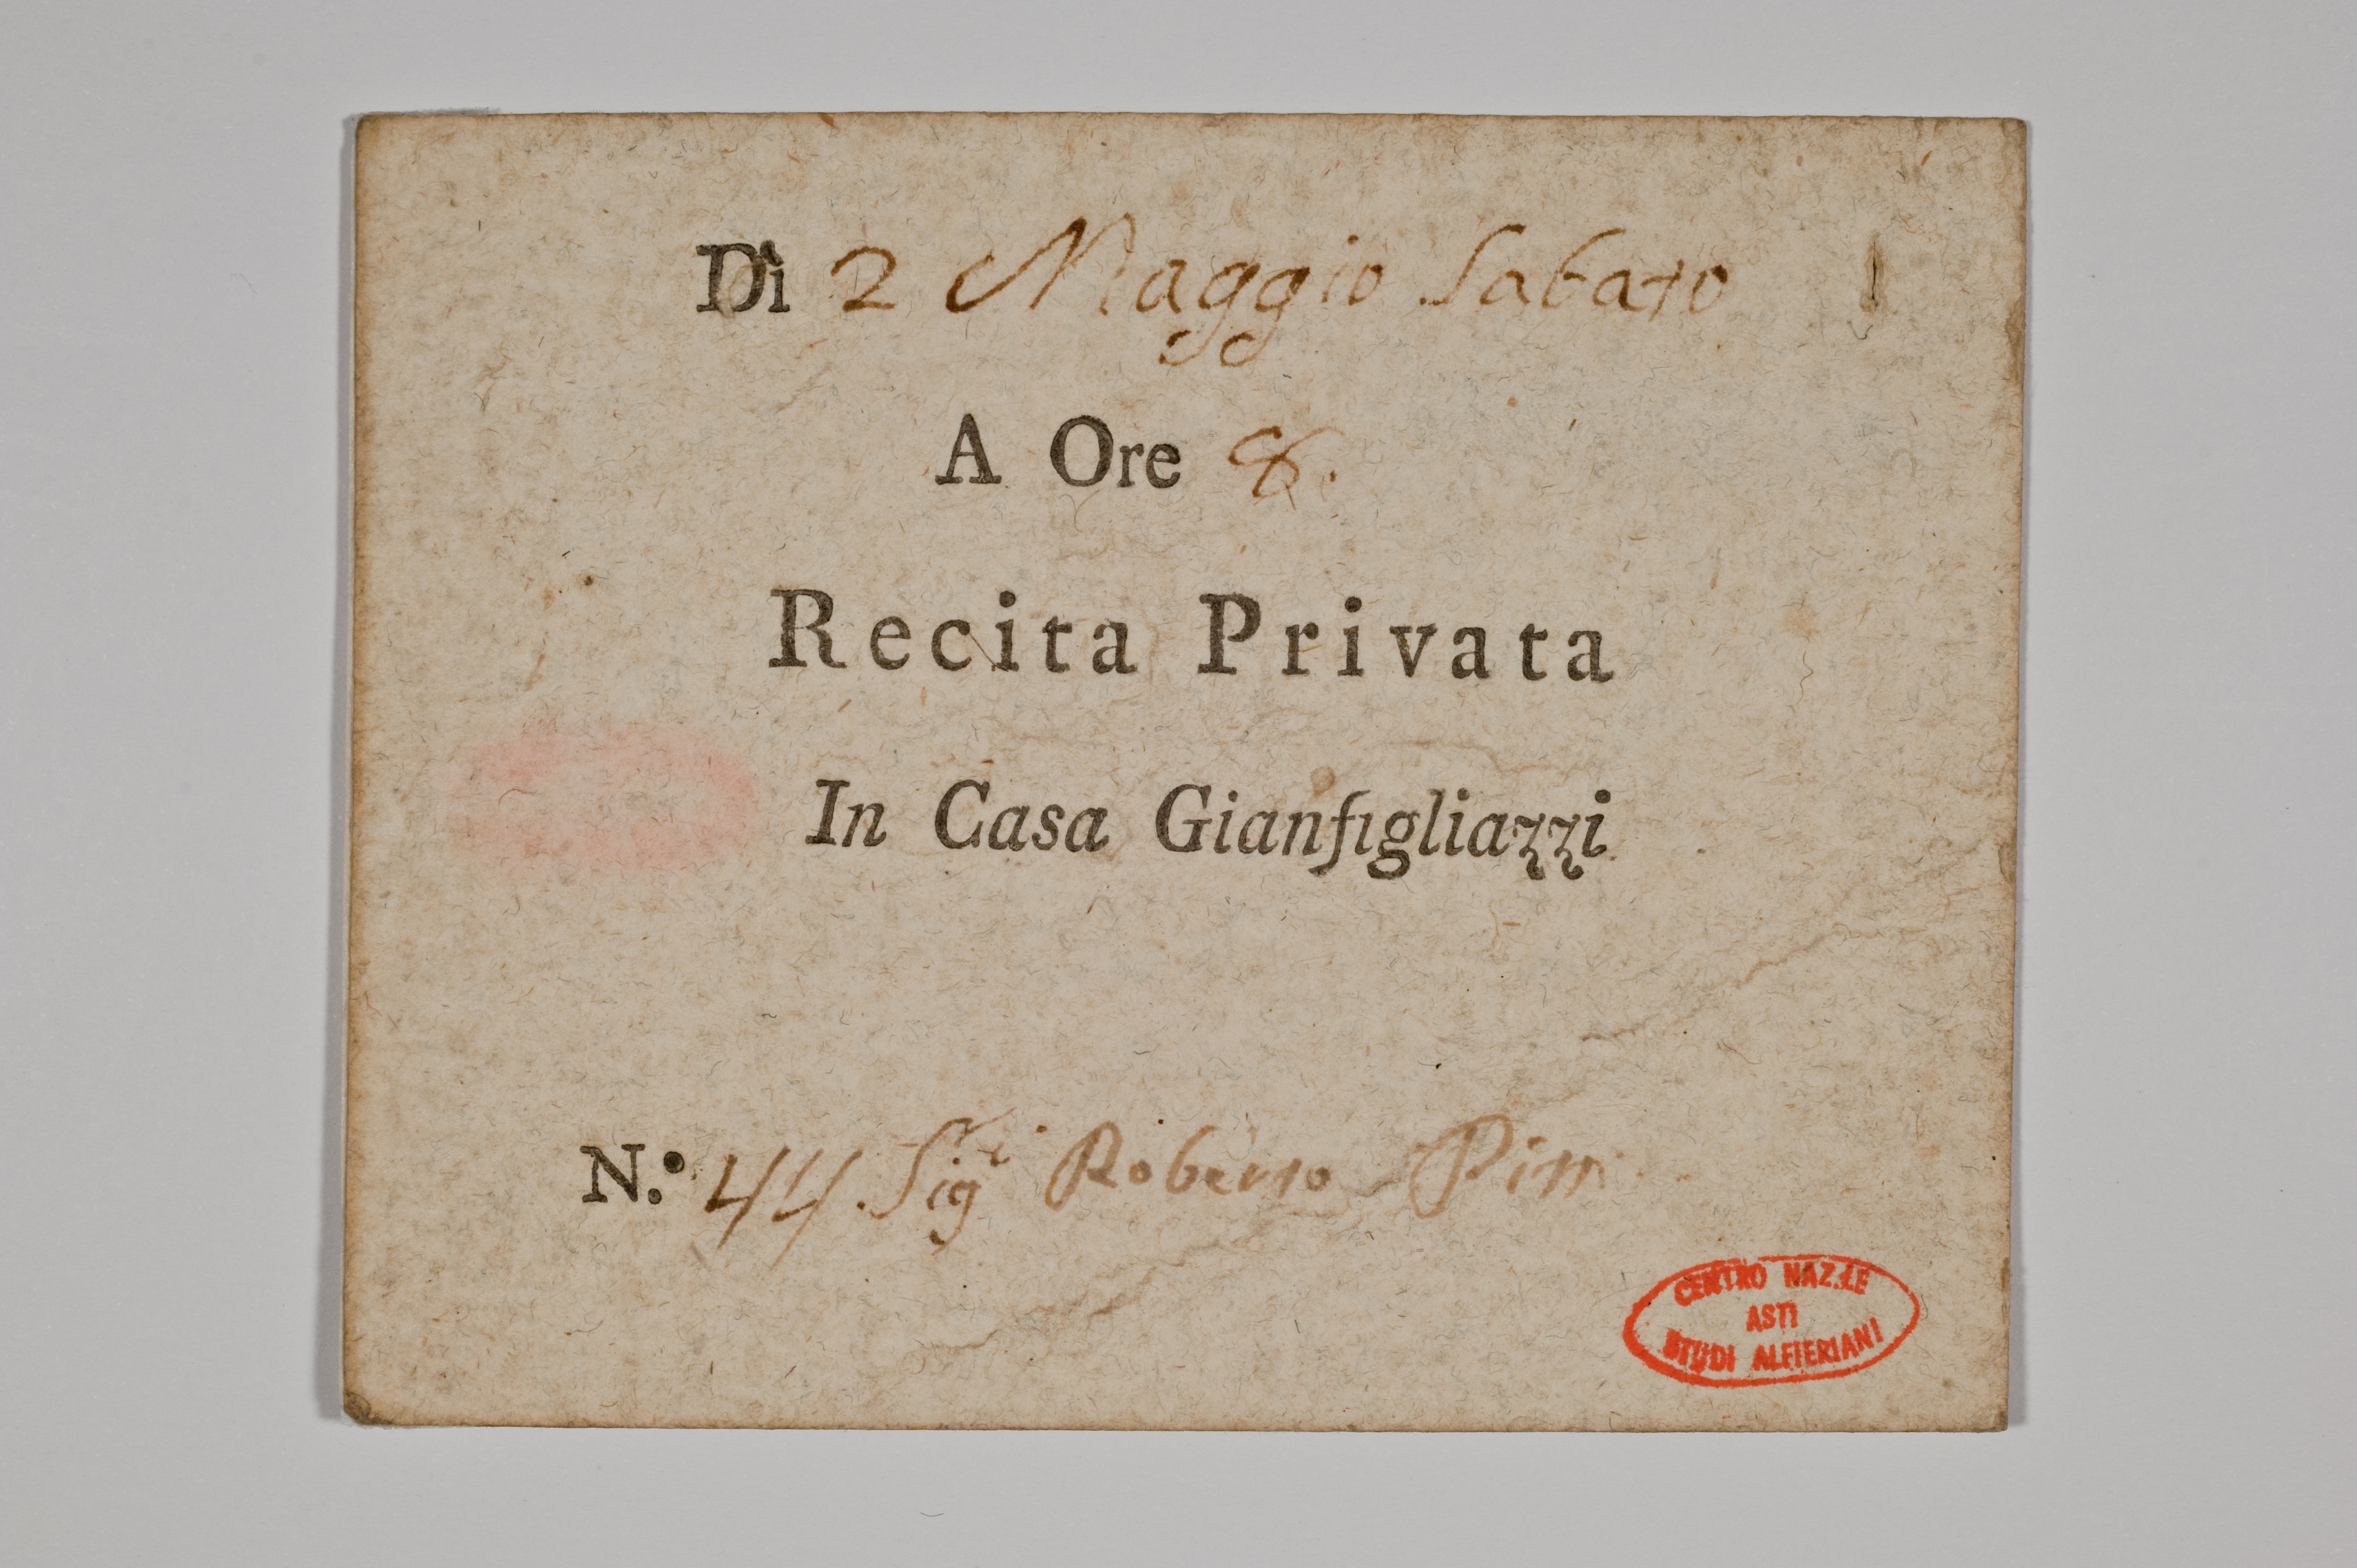 Dì 2 Maggio Sabato
A Ore 8.
Recita Privata
In Casa Gianfigliazzi
N.º 44 Sigʳ Roberto
CENTRO NAZ.LE
ASTI
STUDI ALFIERIANI